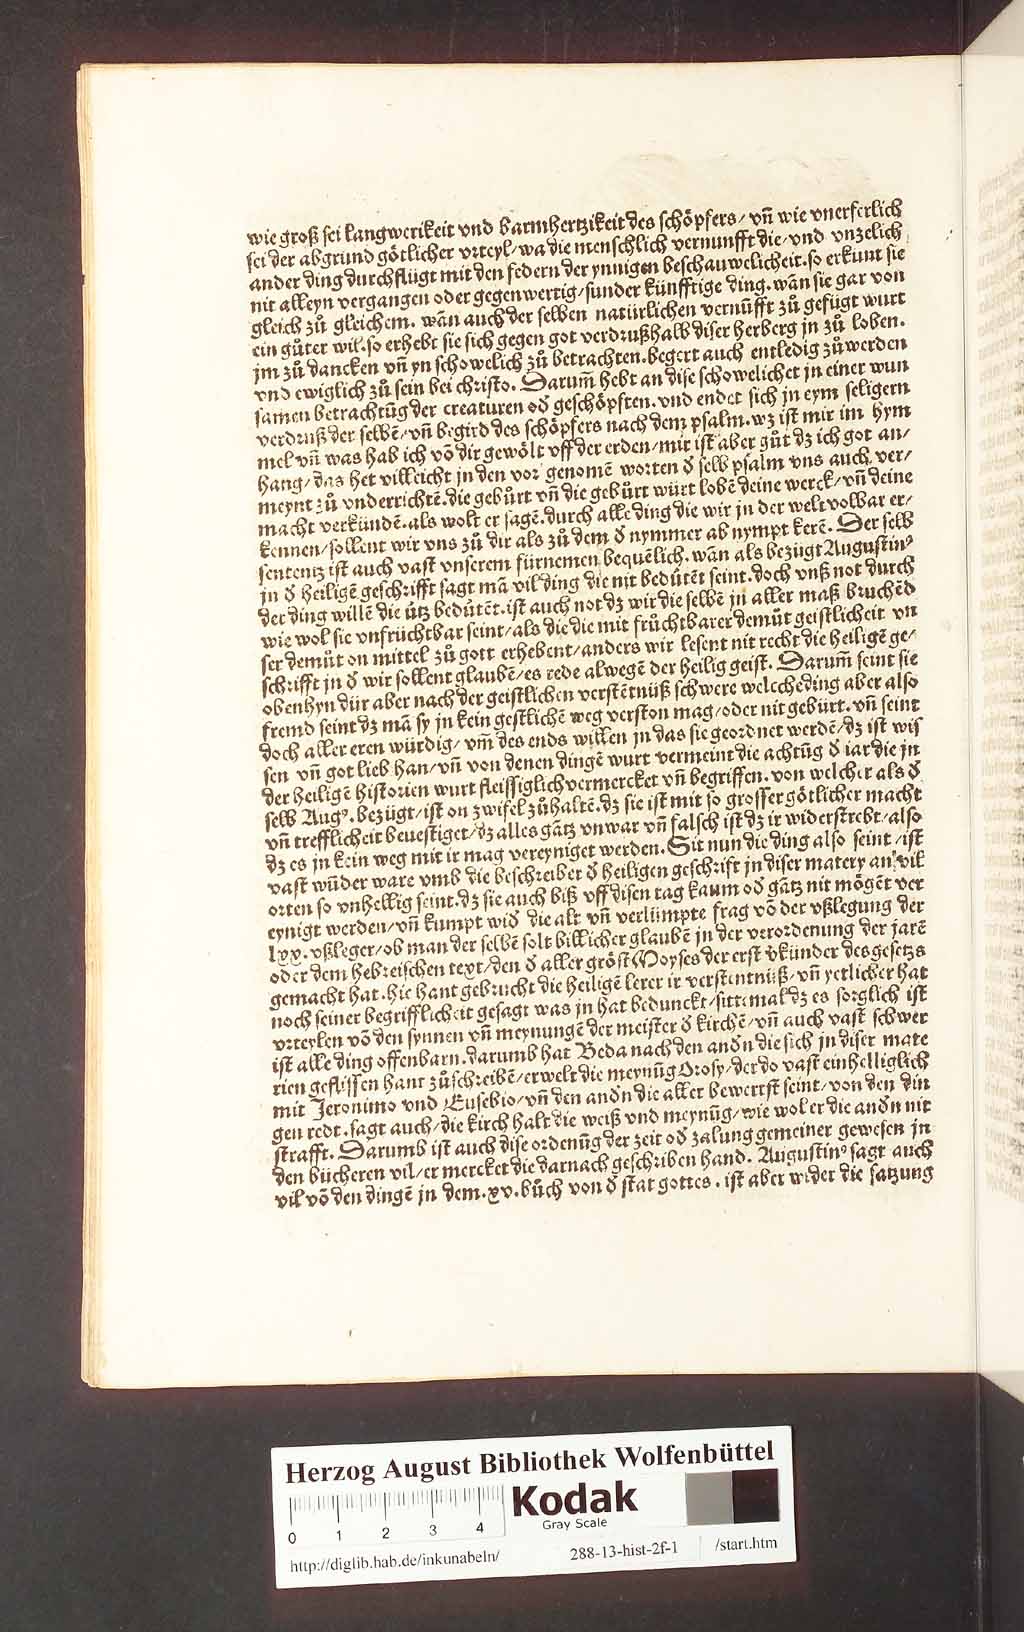 wie groß sei langwerikeit vnd barmhertzikeit des schöpfers/ vn̄ wie vnerferlich
sei der abgrund götlicher vrteyl/wa die menschlich vernunfft die/vnd vnzelich
ander ding durchflügt mit den federn der ynnigen beschauwelicheit.so erkunt sie
nit alleyn vergangen oder gegenwertig/sunder künfftige ding.wān sie gar von
gleich zů gleichem. wān auch der selben natürlichen vernūfft zů gefügt wurt
ein gůter wil.so erhebt sie sich gegen got verdrußhalb diser herberg jn zů loben.
jm zů dancken vn̄ yn schowelich zů betrachten.begert auch entledig zůwerden
vnd ewiglich zů sein bei christo. Darum̄ hebt an dise schowelichet jn einer wun
samen betrachtūg der creaturen od̄ geschöpften.vnd endet sich jn eym seligern
verdruß der selbē/vn̄ begird des schöpfers nach dem psalm.wz ist mir im hym
mel vn̄ was hab ich vō dir gewölt vff der erden/mir ist aber gůt dz ich got an/
hang/das het villeicht jn den vor genomē worten d̄ selb psalm vns auch ver/
meynt zů vnderrichtē.die gebůrt vn̄ die gebůrt würt lobē deine werck/vn̄ deine
macht verkündē.als wolt er sagē.durch alle ding die wir jn der welt volbar er/
kennen/sollent wir vns zů dir als zů dem d̄ nymmer ab nympt kerē. Der selb
sententz ist auch vast vnserem fürnemen bequēlich.wān als bezügt Augustinꝰ
jn d̄ heiligē geschrifft sagt mā vil ding die nit bedütēt seint.doch vnß not durch
der ding willē die ütz bedütēt.ist auch not dz wir die selbē jn aller maß bruchēd
wie wol sie vnfruchtbar seint/als die die mit früchtbarer demůt geistlicheit vn
ser demůt on mittel zů gott erhebent/anders wir lesent nit recht die heiligē ge/
schrifft jn d̄ wir sollent glaubē/es rede alwegē der heilig geist. Darum̄ seint sie
obenhyn dür aber nach der geistlichen verstētnüß schwere welche ding aber also
fremd seint dz mā sy jn kein gestlichē weg verston mag/oder nit gebürt.vn̄ seint
doch aller eren würdig/ vm̄ des ends willen jn das sie geordnet werdē/dz ist wis
sen vn̄ got lieb han/vn̄ von denen dingē wurt vermeint die achtūg d̄ iar die jn
der heiligē historien wurt fleissiglich vermercket vn̄ begriffen.von welcher als d̄
selb Augꝰ.bezügt/ist on zwifel zůhaltē.dz sie ist mit so grosser götlicher macht
vn̄ trefflicheit beuestiget/dz alles gātz vnwar vn̄ falsch ist dz ir widerstrebt/also
dz es jn kein weg mit ir mag vereyniget werden. Sit nun die ding also seint/ist
vast wūder ware vmb die beschreiber d̄ heiligen geschrift jn diser matery an vil
orten so vnhellig seint.dz sie auch biß vff disen tag kaum od̄ gātz nit mögēt ver
eynigt werden/vn̄ kumpt wid̄ die alt vn̄ verlümpte frag vō der vßlegung der
lxx.vßleger/ob man der selbē solt billicher glaubē jn der verordenung der jarē
oder dem hebreischen text/den d̄ aller gröst Moyses der erst v̄künder des gesetzs
gemacht hat.hie hant gebrucht die heiligē lerer ir verstentnüß/vn̄ yetlicher hat
noch seiner begrifflicheit gesagt was jn hat bedunckt/sittemal dz es sorglich ist
vrteylen vō den synnen vn̄ meynungē der meister d̄ kirchē/vn̄ auch vast schwer
ist alle ding offenbarn.darumb hat Beda nach den and̄n die sich jn diser mate
rien geflissen hant zůschreibē/erwelt die meynūg Orosy/der do vast einhelliglich
mit Jeronimo vnd Eusebio/vn̄ den and̄n die aller bewertst seint/von den din
gen redt.sagt auch/die kirch halt die weiß vnd meynūg/wie wol er die and̄n nit
strafft. Darumb ist auch dise ordenūg der zeit od̄ zalung gemeiner gewesen jn
den bücheren vil/er mercket die darnach geschriben hand. Augustinꝰ sagt auch
vil vō den dingē jn dem.xv.bůch von d̄ stat gottes. ist aber wider die satzung
Herzog August Bibliothek Wolfenbüttel
0 1 2 3 4
Kodak
Gray Scale
http://diglib.hab.de/inkunabeln/ 288-13-hist-2f-1 /start.htm